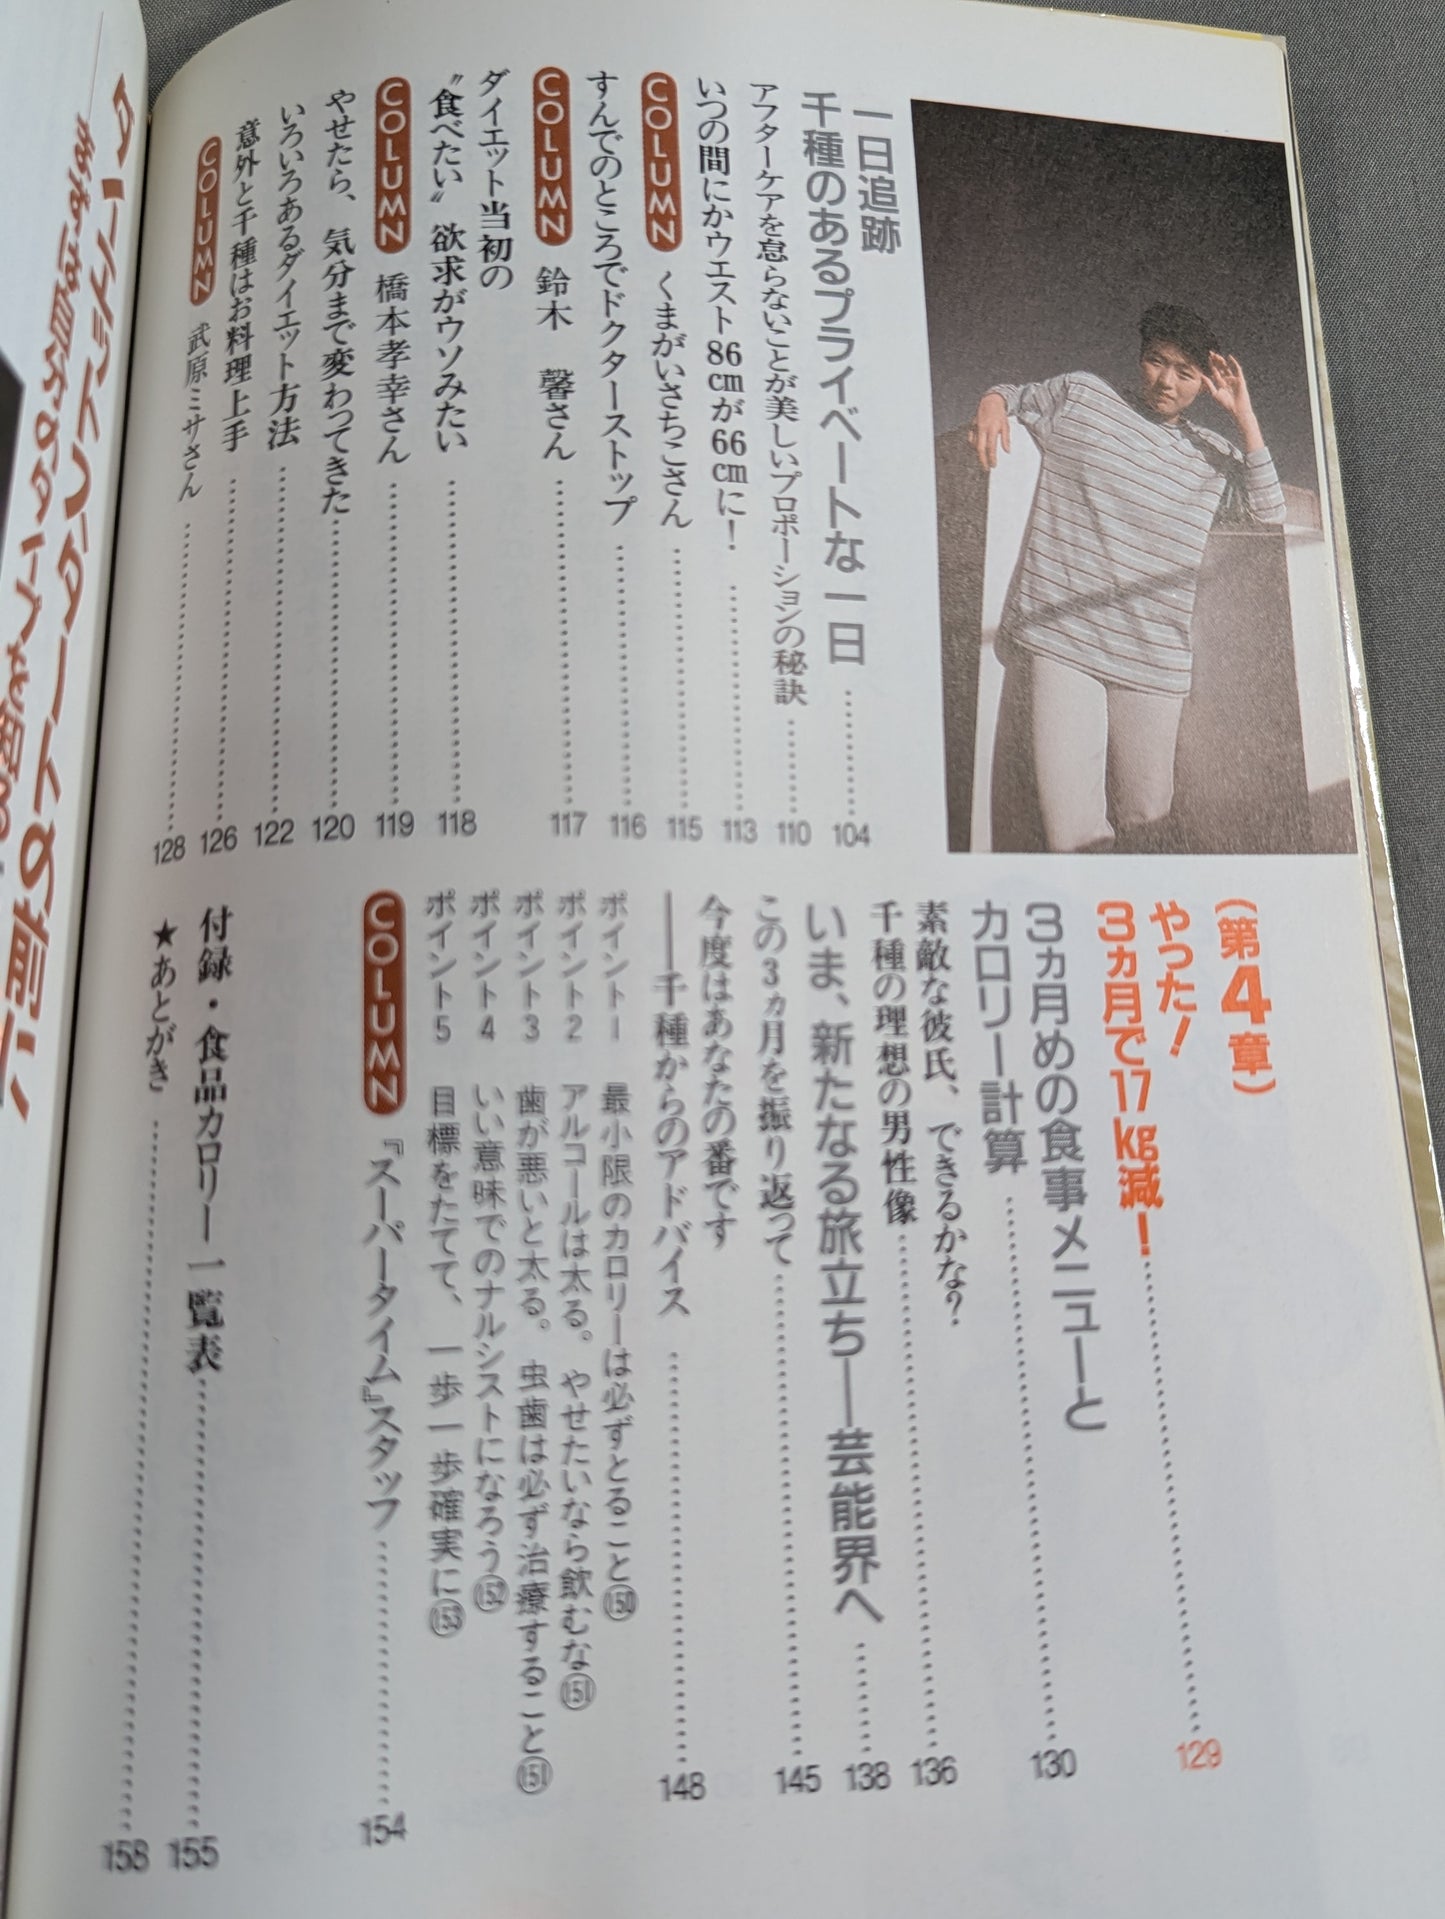 一日追跡
千種のあるプライベートな一日………104
アフターケアを怠らないことが美しいプロポーションの秘訣………110
いつの間にかウエスト86cmが66cmに！………113
COLUMN くまがいさちこさん………115
すんでのところでドクターストップ………116
COLUMN 鈴木 馨さん………117
ダイエット当初の
〝食べたい〟欲求がウソみたい………118
COLUMN 橋本孝幸さん………119
やせたら、気分まで変わってきた………120
いろいろあるダイエット方法………122
意外と千種はお料理上手………126
COLUMN 武原ミサさん………128
(第4章)
やった！
3ヵ月で17kg減！………129
3ヵ月めの食事メニューと
カロリー計算………130
素敵な彼氏、できるかな？
千種の理想の男性像………136
いま、新たなる旅立ち―芸能界へ………138
この3ヵ月を振り返って………145
今度はあなたの番です
――千種からのアドバイス………148
ポイント1 最小限のカロリーは必ずとること⑮⓪
ポイント2 アルコールは太る。やせたいなら飲むな(151)
ポイント3 歯が悪いと太る。虫歯は必ず治療すること(151)
ポイント4 いい意味でのナルシストになろう(152)
ポイント5 目標をたてて、一歩一歩確実に(153)
COLUMN 『スーパータイム』スタッフ………154
付録・食品カロリー一覧表………155
★あとがき………158